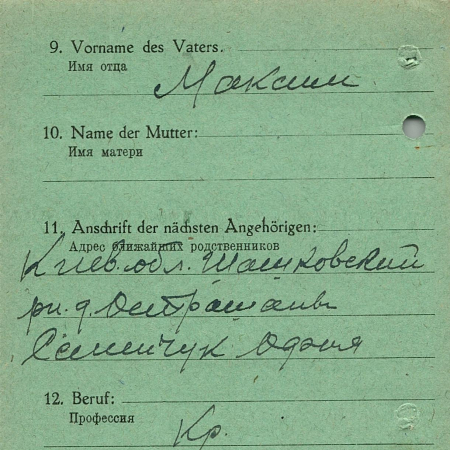 9. Vorname des Vaters.
Имя отца
Максим
10. Name der Mutter:
Имя матери
11. Anschrift der nächsten Angehörigen:
Адрес ближайших родственников
Киев. обл. Ташковский
рн. д.
Семенчук
12. Beruf:
Профессия
Кр.